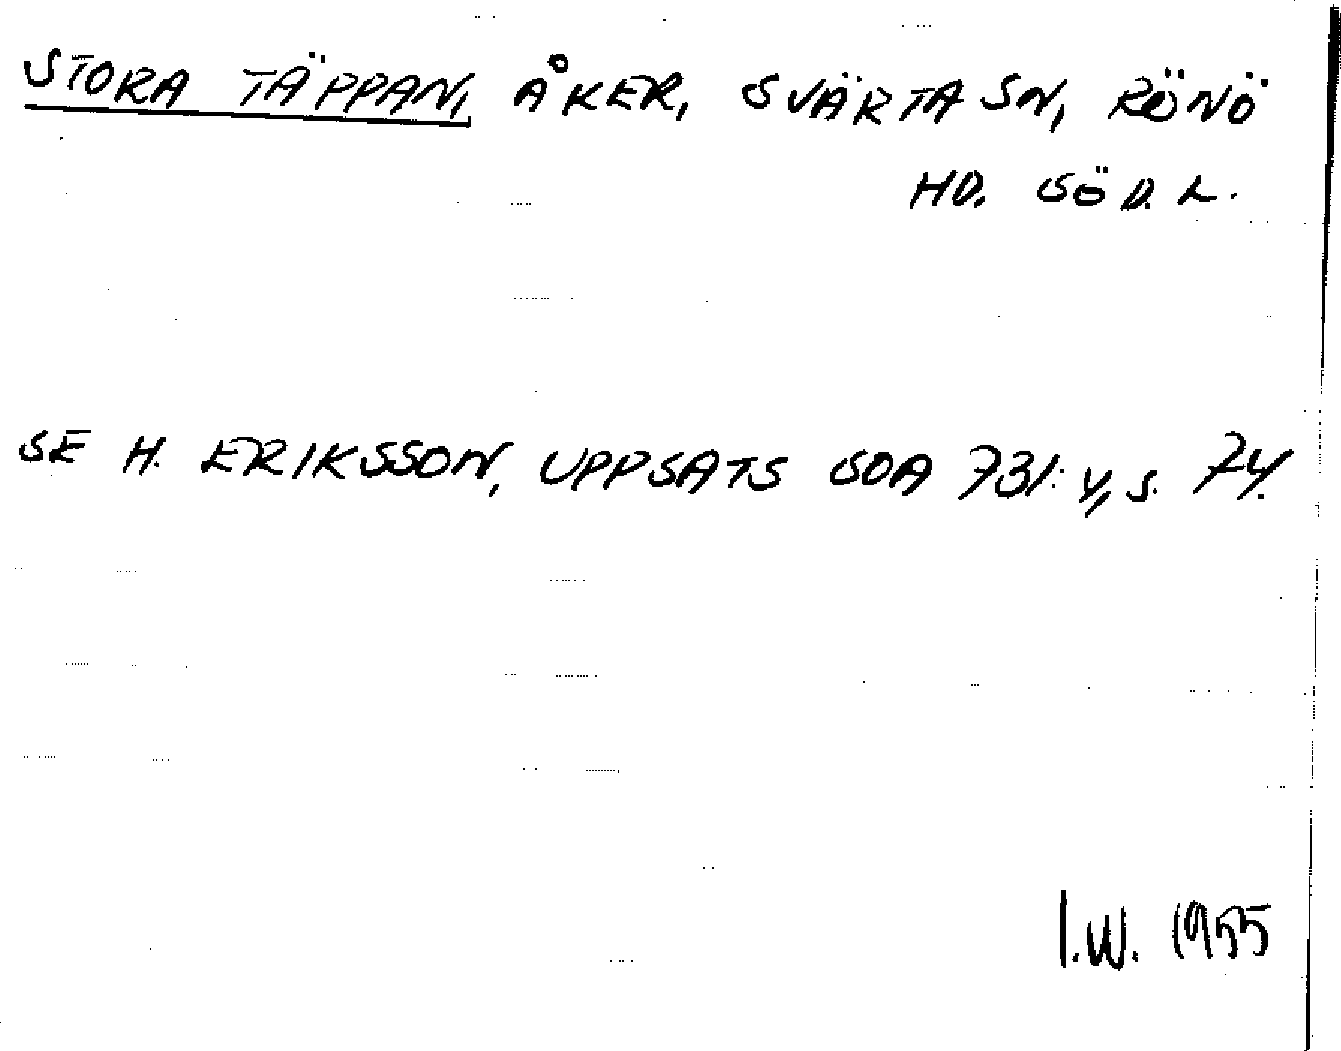 STORA TÄPPAN, ÅKER, SVÄRTA SN, RÖNÖ
HD. SÖD. L.
SE H. ERIKSSON, UPPSATS SOA 731:4, S. 74.
I.W. 1955